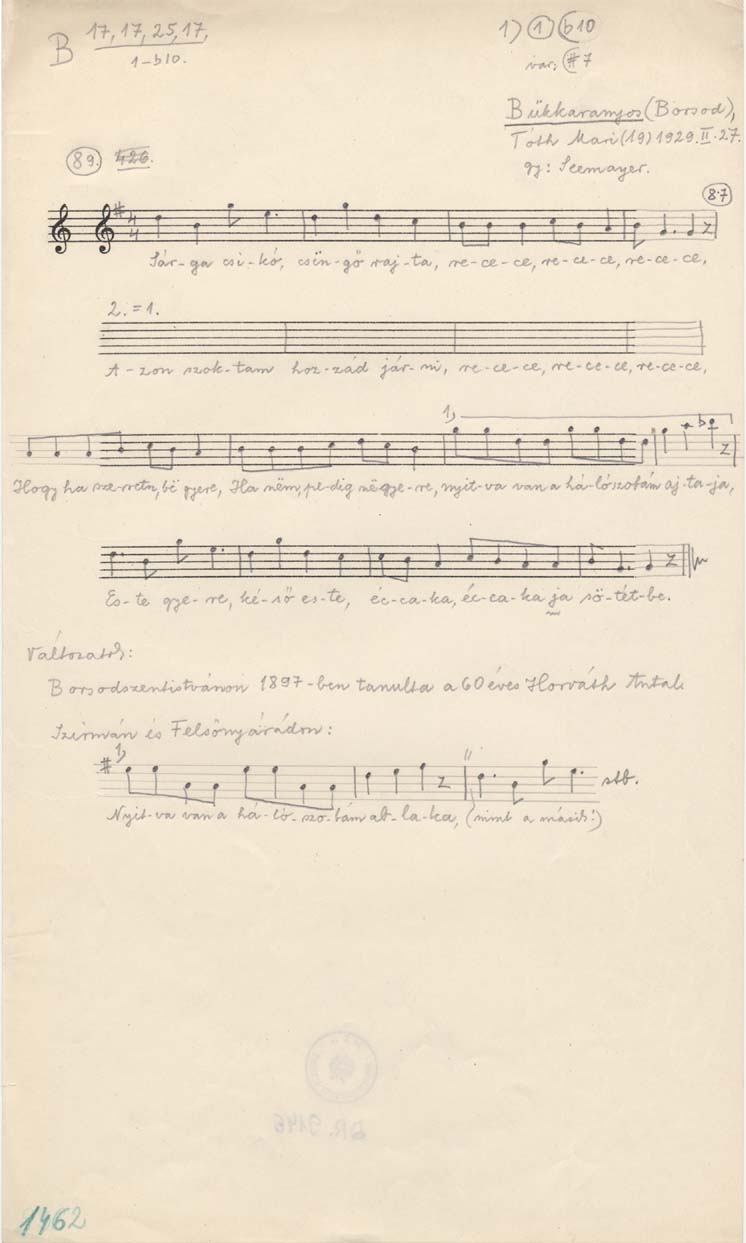 B 17, 17, 25, 17,
1-b10.
1) 1) b10
var: #7
Bükkaranyos (Borsod),
Tóth Mari (19) 1929. II. 27.
gy: Seemayer.
89. 426.
8·7
4 4
Sár-ga csi-kó, csën-gő raj-ta, re-ce-ce, re-ce-ce, re-ce-ce,
2. = 1.
A-zon szok-tam hoz-zád jár-ni, re-ce-ce, re-ce-ce, re-ce-ce,
1)
Hogy ha sze-retn, bë gyere, Ha nëm, pe-dig në gye-re, nyit-va van a há-lószobám aj-ta-ja,
Es-te gye-re, ké-ső es-te, éc-ca-ka, éc-ca-ka ja sö-tét-be.
Változatok:
Borsodszentistvánon 1897-ben tanulta a 60 éves Horváth Antal.
Szirmán és Felsőnyárádon:
1)
stb.
Nyit-va van a há-ló-szo-bám ab-la-ka, (mint a másik!)
DR. 9146
1462